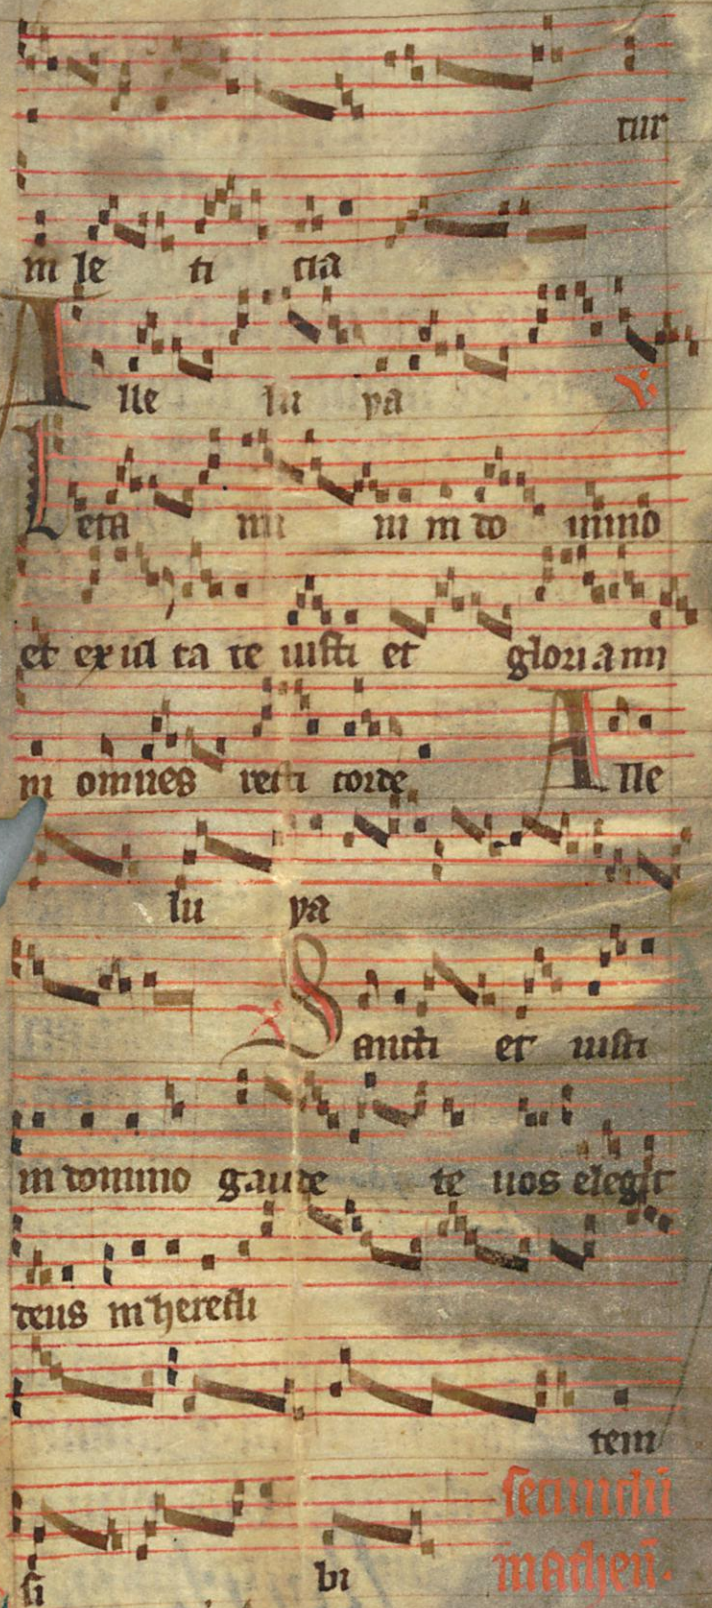 tur
in le ti cia
Alle lu ya V
Leta mi ni in do mino
et ex ul ta te iusti et gloriamī
ni omnes recti corde Alle
lu ya
Sancti et iusti
in domino gaude te uos elegit
deus in heredi
tem
si bi secundū
matheū.